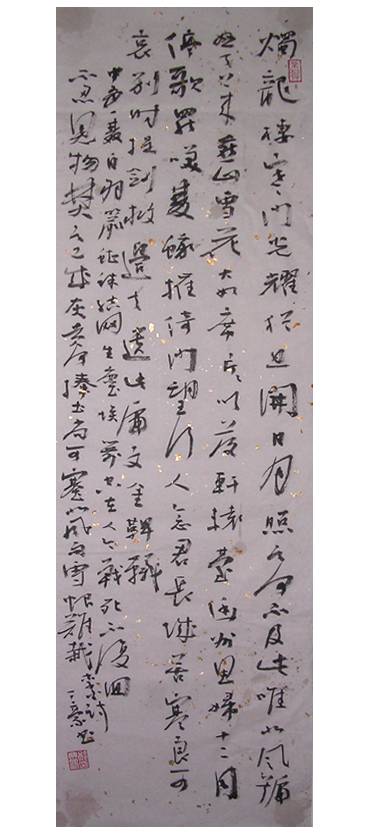 燭龍棲寒門光耀猶旦開日月照之何不及此唯北風號
怒天上来燕山雪花大如席片片吹落軒轅臺幽州思婦十二月
停歌罷笑雙蛾摧倚門望行人念君長城苦寒良可
哀别時提劍救邊去遺此虎文金鞞靫
中有一雙白羽箭蜘蛛結網生塵埃箭空在人今戰死不復回
不忍見物焚之已成灰黄河捧土尚可塞北風雨雪恨難裁李白詩